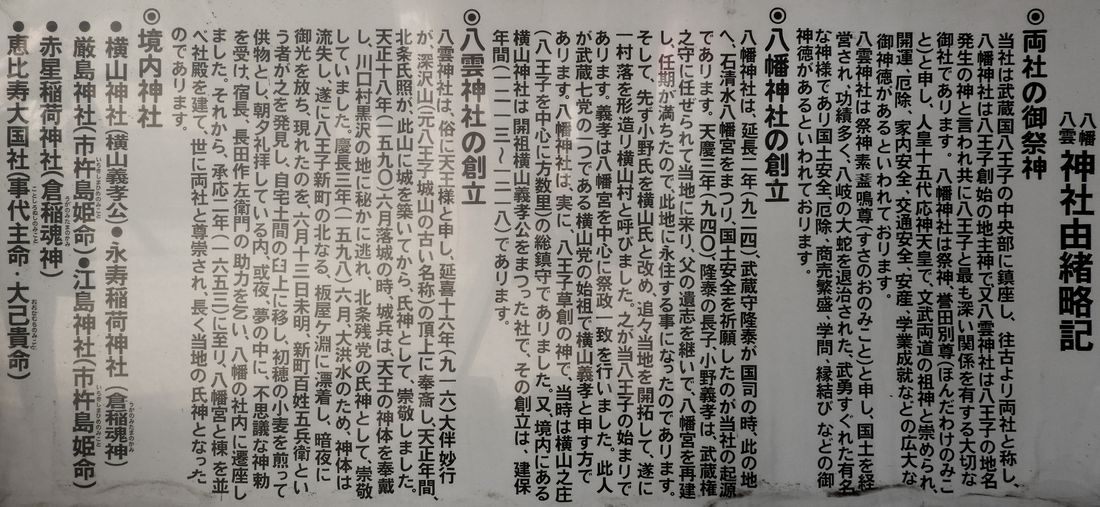 八幡八雲 神社由緒略記
◉両社の御祭神
当社は武蔵国八王子の中央部に鎮座し、往古より両社と称し、
八幡神社は八王子創始の地主神で又八雲神社は八王子の地名
発生の神と言われ共に八王子と最も深い関係を有する大切な
御社であります。八幡神社は祭神、誉田別尊(ほんだわけのみこ
と)と申し、人皇十五代応神天皇で、文武両道の祖神と崇められ、
開運、厄除、家内安全、交通安全、安産、学業成就などの広大な
御神徳があるといわれております。
八雲神社は祭神素盞鳴尊(すさのおのみこと)と申し、国土を経
営され、功績多く、八岐の大蛇を退治された、武勇すぐれた有名
な神様であり国土安全、厄除、商売繁盛、学問、縁結び などの御
神徳があるといわれております。
◉八幡神社の創立
八幡神社は、延長二年(九二四)、武蔵守隆泰が国司の時、此の地
へ、石清水八幡宮をまつり、国土安全を祈願したのが当社の起源
であります。天慶三年(九四〇)、隆泰の長子、小野義孝は、武蔵権
之守に任ぜられて当地に来り、父の遺志を継いで、八幡宮を再建
し、任期が満ちたので、此地に永住する事になったのであります。
そして、先ず小野氏を横山氏と改め、追々当地を開拓して、遂に
一村落を形造り横山村と呼びました。之が当八王子の始まりで
あります。義孝は八幡宮を中心に祭政一致を行いました。此人
が武蔵七党の一つである横山党の始祖で横山義孝と申す方で
あります。八幡神社は、実に、八王子草創の神で、当時は横山之庄
(八王子を中心に方数里)の総鎮守でありました。又、境内にある
横山神社は開祖横山義孝公をまつった社で、その創立は、建保
年間(一二一三〜一二一八)であります。
◉八雲神社の創立
八雲神社は、俗に天王様と申し、延喜十六年(九一六)大伴妙行
が、深沢山(元八王子城山の古い名称)の頂上に奉斎し、天正年間、
北条氏照が此山に城を築いてから、氏神として、崇敬しました。
天正十八年(一五九〇)六月落城の時、城兵は、天王の神体を奉戴
し、川口村黒沢の地に秘かに逃れ、北条残党の氏神として、崇敬
していました。慶長三年(一五九八)六月、大洪水のため、神体は
流失し、遂に八王子新町の北なる、板屋ケ淵に漂着し、暗夜に
御光を放ち、現れたのを、六月十三日未明、新町百姓五兵衛とい
う者が之を発見し、自宅土間の臼の上に移し、初穂の小麦を煎って
供物とし、朝夕礼拝している内、或夜、夢の中に、不思議な神勅
を受け、宿長、長田作左衛門の助力を乞い、八幡の社内に遷座し
ました。それから、承応二年(一六五三)に至り、八幡宮と棟を並
べ社殿を建て、世に両社と尊崇され、長く当地の氏神となった
のであります。
◉境内神社
●横山神社(横山義孝公)●永寿稲荷神社(倉稲魂神)
●厳島神社(市杵島姫命)●江島神社(市杵島姫命)
●赤星稲荷神社(倉稲魂神)
●恵比寿大国社(事代主命・大己貴命)